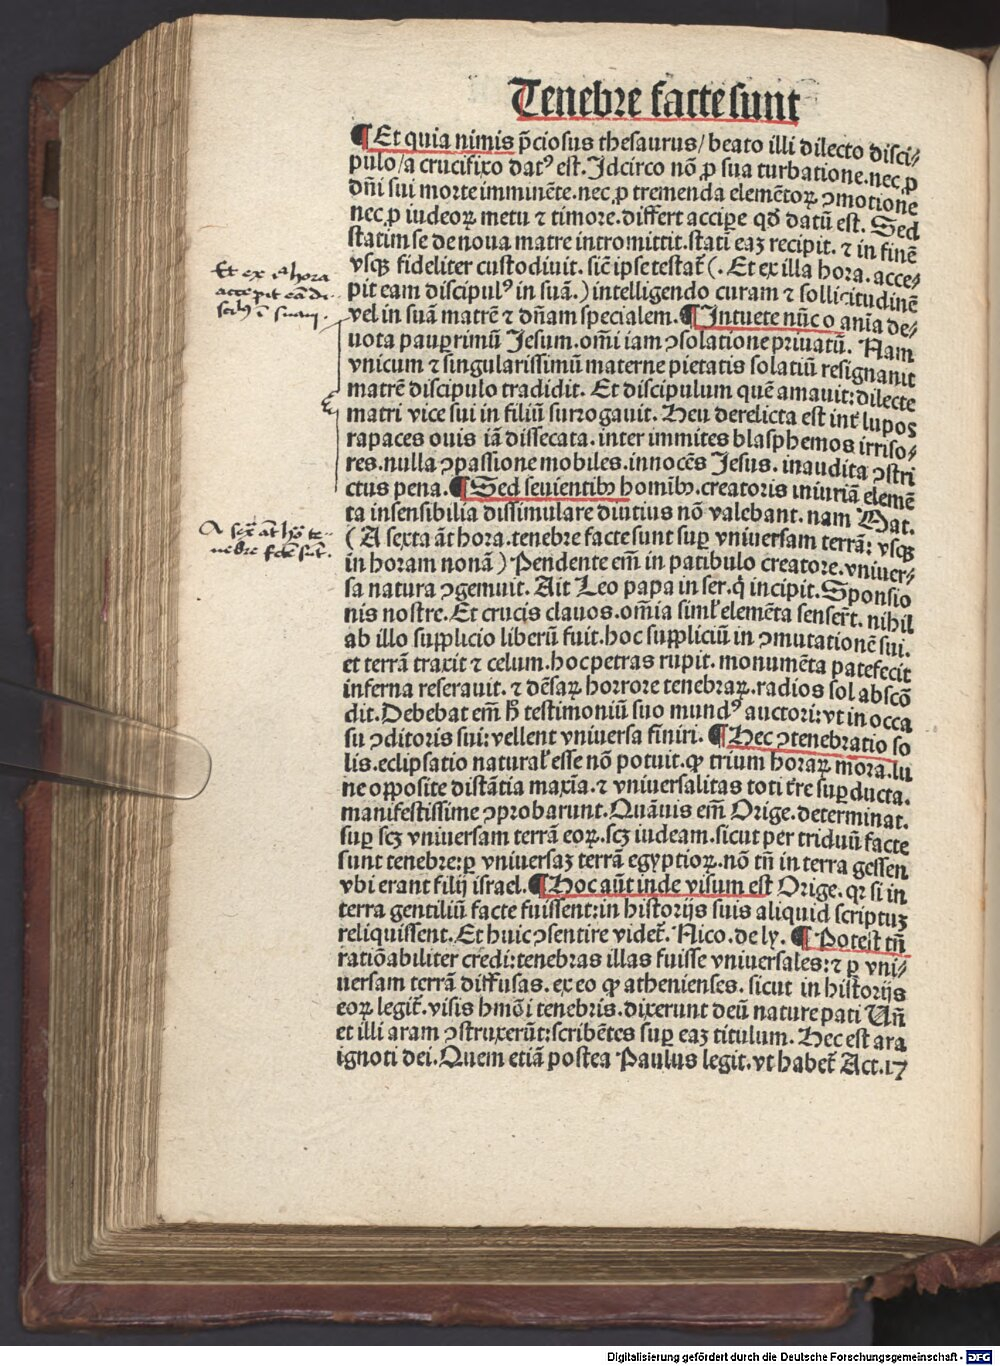 Tenebre facte sunt
¶ Et quia nimis p̄ciosus thesaurus/ beato illi dilecto disci⸗
pulo/ a crucifixo datꝰ est. Idcirco nō ꝓ sua turbatione. nec ꝓ
dn̄i sui morte imminēte. nec ꝓ tremenda elemētoꝝ ꝯmotione
nec ꝓ iudeoꝝ metu ⁊ timore. differt accipe qd̓ datū est. Sed
statim se de noua matre intromittit. stati eaꝫ recipit. ⁊ in finē
vsqꝫ fideliter custodiuit. sic̄ ipse testat̄ (. Et ex illa hora. acce⸗
pit eam discipulꝰ in suā.) intelligendo curam ⁊ sollicitudinē
vel in suā matrē ⁊ dn̄am specialem. ¶ Intuete nūc o anīa de⸗
uota pauꝑrimū Jesum. om̄i iam ꝯsolatione priuatū. Nam
vnicum ⁊ singularissimū materne pietatis solatiū resignauit
matrē discipulo tradidit. Et discipulum quē amauit: dilecte
matri vice sui in filiū surrogauit. Heu derelicta est int̄ lupos
rapaces ouis iā dissecata. inter immites blasphemos irriso⸗
res. nulla ꝯpassione mobiles. innocēs Jesus. inaudita ꝯstri
ctus pena. ¶ Sed seuientibꝫ homībꝫ. creatoris iniuriā elemē
ta insensibilia dissimulare diutius nō valebant. nam Mat.
( A sexta āt hora. tenebre facte sunt suꝑ vniuersam terrā: vsqꝫ
in horam nonā ) Pendente em̄ in patibulo creatore. vniuer⸗
sa natura ꝯgemuit. Ait Leo papa in ser. q̇ incipit. Sponsio
nis nostre. Et crucis clauos. om̄ia siml̓ elemēta senser̄t. nihil
ab illo supplicio liberū fuit. hoc suppliciū in ꝯmutationē sui.
et terrā traxit ⁊ celum. hoc petras rupit. monumēta patefecit
inferna reserauit. ⁊ dēsaꝝ horrore tenebraꝝ. radios sol abscō
dit. Debebat em̄ h̄ testimoniū suo mundꝰ auctori: vt in occa
su ꝯditoris sui: vellent vniuersa finiri. ¶ Hec ꝯtenebratio so
lis. eclipsatio natural̓ esse nō potuit. qꝫ trium horaꝝ mora. lu
ne opposite distātia maxīa. ⁊ vniuersalitas toti t̄re suꝑducta.
manifestissime ꝯprobarunt. Quāuis em̄ Orige. determinat.
suꝑ scꝫ vniuersam terrā eoꝝ. scꝫ iudeam. sicut per triduū facte
sunt tenebre: ꝑ vniuersaꝫ terrā egyptioꝝ. nō tn̄ in terra gessen
vbi erant filij israel. ¶ Hoc aūt inde visum est Orige. qꝛ si in
terra gentiliū facte fuissent: in historijs suis aliquid scriptuꝫ
reliquissent. Et huic ꝯsentire videt̄. Nico. de ly. ¶ Potest tn̄
ratiōabiliter credi: tenebras illas fuisse vniuersales: ⁊ ꝑ vni⸗
uersam terrā diffusas. ex eo qꝫ athenienses. sicut in historijs
eoꝝ legit̄. visis hmōi tenebris. dixerunt deū nature pati Vn̄
et illi aram ꝯstruxerūt: scribētes suꝑ eaꝫ titulum. Hec est ara
ignoti dei. Quem etiā postea Paulus legit. vt habet̄ Act. 17
Et ex illa hora
accepit eā di⸗
sclꝰ ī suam.
A sex̄ āt ho᷑ te⸗
nebre fcte sūt.